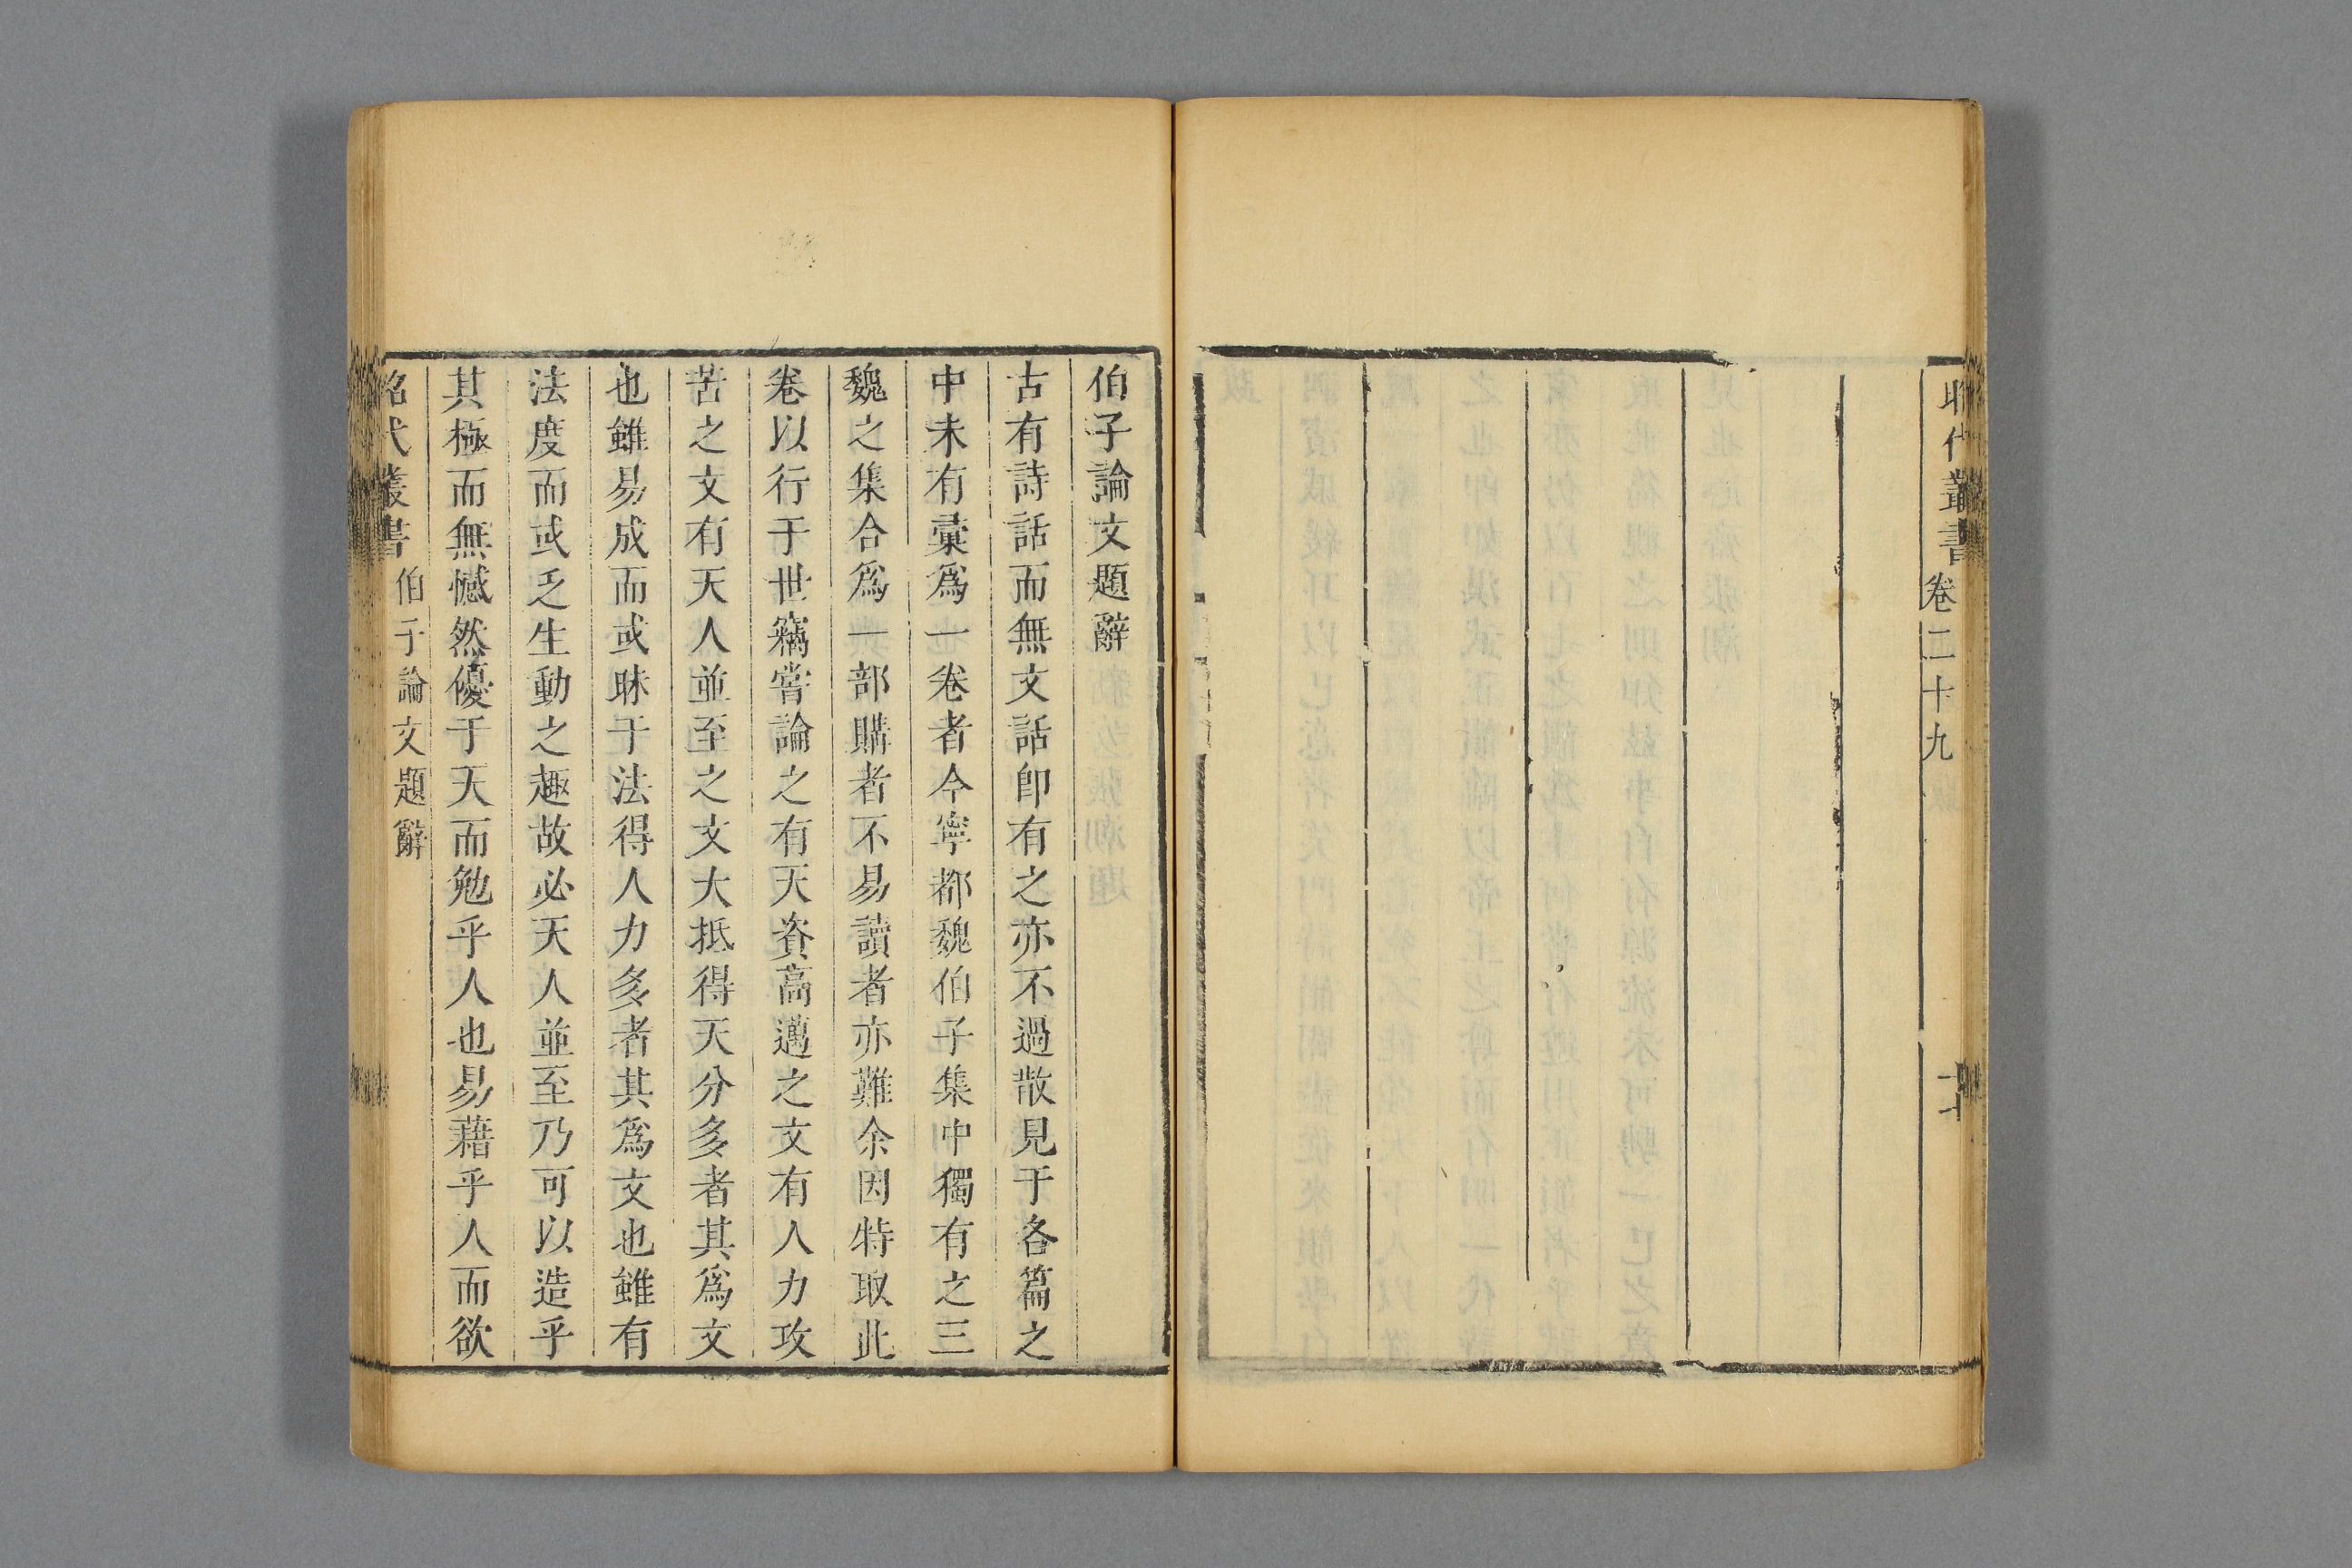 昭代叢書 卷二十九
伯子論文題辭
古有詩話而無文話卽有之亦不過散見于各篇之
中未有彙爲一卷者今寧都魏伯子集中獨有之三
魏之集合爲一部購者不易讀者亦難余因特取此
卷以行于世竊嘗論之有天資高邁之文有人力攻
苦之文有天人並至之文大抵得天分多者其爲文
也雖易成而或昧于法得人力多者其爲文也雖有
法度而或乏生動之趣故必天人並至乃可以造乎
其極而無憾然優于天而勉乎人也易藉乎人而欲
昭代叢書 伯子論文題辭